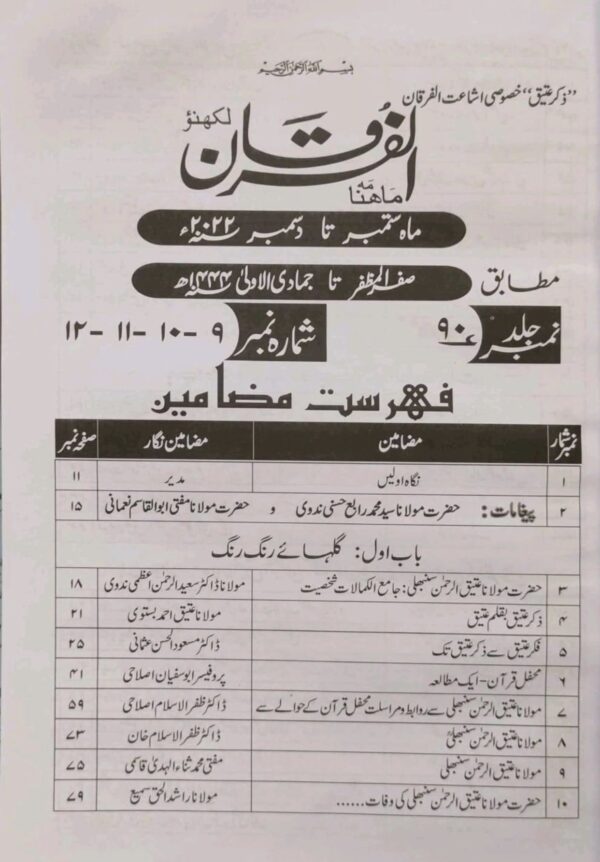 بسم اللہ الرحمٰن الرحیم
”ذکر عتیق“ خصوصی اشاعت الفرقان
الفرقان لکھنؤ
ماہنامہ
ماہ ستمبر تا دسمبر ۲۰۲۲ء
مطابق صفر المظفر تا جمادی الاولیٰ ۱۴۴۴ھ
جلد نمبر ۹۰ شمارہ نمبر ۹ - ۱۰ - ۱۱ - ۱۲
فہرست مضامین
نمبر شمار مضامین مضامین نگار صفحہ نمبر
۱ نگاہ اولیں مدیر ۱۱
۲ پیغامات: حضرت مولانا سید محمد رابع حسنی ندوی و حضرت مولانا مفتی ابوالقاسم نعمانی ۱۵
باب اول: گلہائے رنگ رنگ
۳ حضرت مولانا عتیق الرحمٰن سنبھلی: جامع الکمالات شخصیت مولانا ڈاکٹر سعید الرحمٰن اعظمی ندوی ۱۸
۴ ذکر عتیق بقلم عتیق مولانا عتیق احمد بستوی ۲۱
۵ فکر عتیق سے ذکر عتیق تک ڈاکٹر مسعود الحسن عثمانی ۲۵
۶ محفل قرآن - ایک مطالعہ پروفیسر ابوسفیان اصلاحی ۴۱
۷ مولانا عتیق الرحمٰن سنبھلی سے روابط و مراسلت محفل قرآن کے حوالے سے ڈاکٹر ظفر الاسلام اصلاحی ۵۹
۸ مولانا عتیق الرحمٰن سنبھلیؒ ڈاکٹر ظفر الاسلام خان ۷۳
۹ مولانا عتیق الرحمٰن سنبھلی مفتی محمد ثناء الہدیٰ قاسمی ۷۵
۱۰ حضرت مولانا عتیق الرحمٰن سنبھلی کی وفات...... مولانا راشد الحق سمیع ۷۹